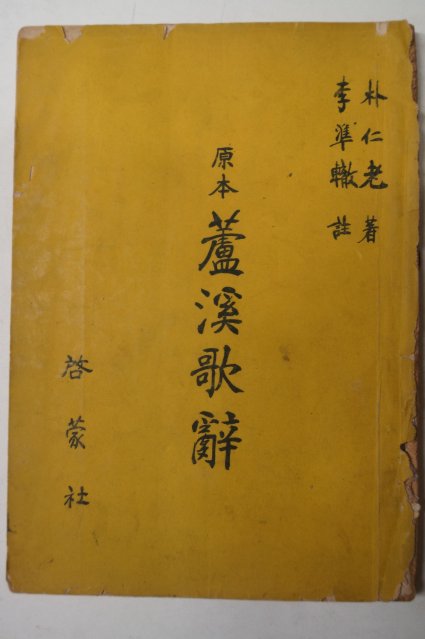 朴仁老 著
李準轍 註
原本
蘆溪歌辭
啓蒙社